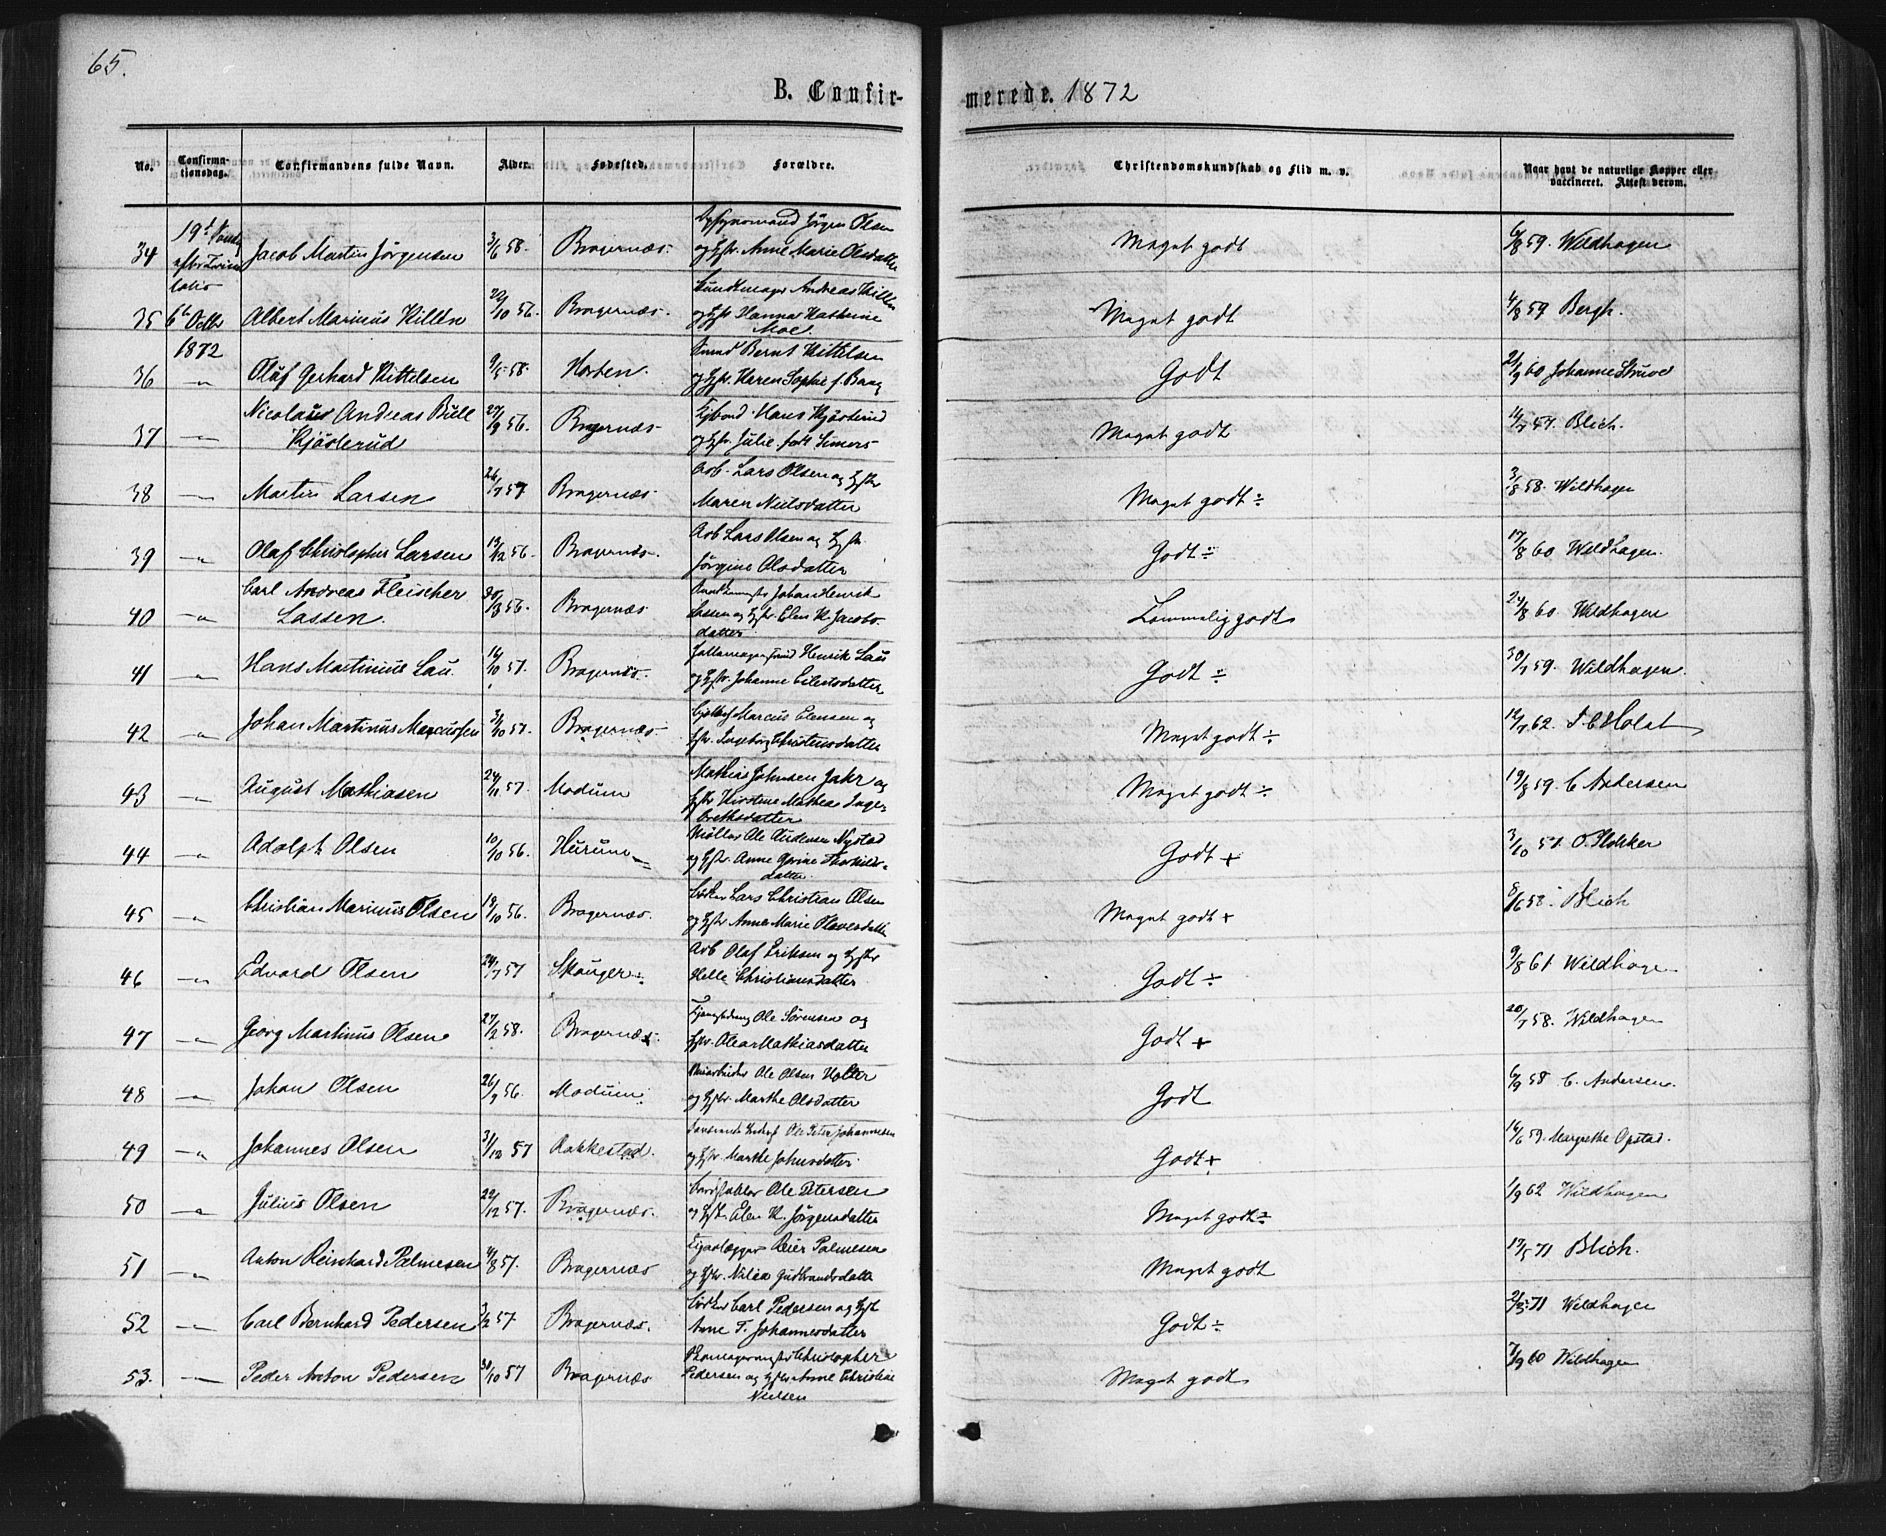 65.
B. Confirmerede. 1872
No.
Confirmationsdag.
Confirmandens fulde Navn.
Alder.
Fødested.
Forældre.
Christendomskundskab og Flid m. v.
Naar havt de naturlige Kopper eller vaccineret. Attest derom.
19d
6te Octbr
1872
34 Jacob Martin Jørgensen 3/6 58. Bragernæs. Jørgen Olsen
og Hstr. Anne Marie Olsdatter
Meget godt 6/8 59. Wildhagen
35 Albert Marinus Killn 22/10 56. Bragernæs. Andreas Killn
og Hstr Hanna Kathrine
Moe
Meget godt 4/8 59 Bergh.
36 " Oluf Gerhard Kittelsen 9/5 58. Horten. Smed Bernt Kittelsen
og Hstr. Karen Sophie f. Baag
Godt 21/9 60 Johanne Struve
37 " Nicolaus Andreas Bull
Kjøsterud
27/9 56. Bragernæs Hans Kjøsterud
og Hstr. Julie født Simers
Meget godt 14/7 57. Blich.
38 " Martin Larsen 26/7 57 Bragernæs. Arb. Lars Olsen og Hstr
Maren Nielsdatter
Meget godt ÷ 3/8 58. Wildhagen
39 " Olaf Christopher Larsen 19/12 56. Bragernæs. Arb Lars Olsen og Hstr.
Jørgine Olsdatter
Godt ÷ 17/8 60 Wildhagen.
40 " Carl Andreas Fleischer
Lassen.
30/8 56. Bragernæs Johan Henrik
Lassen og Hstr. Elen K. Jacobsdatter
Temmelig godt 24/8 60 Wildhagen
41 " Hans Martinius Lau 14/10 57. Bragernæs. Henrik Lau
og Hstr. Johanne Eilertsdatter
Godt ÷ 30/7 59. Wildhagen.
42 " Johan Martinus Marcussen 31/10 57. Bragernæs. Marcus Elensen og
Hstr. Ingeborg Christensdatter
Meget godt ÷ 12/7 62. Holst
43 " August Mathiasen 24/11 57. Modum Mathias Johnsen Jahr og
Hstr Kirstine Mathea Ingebretksdatter
Meget godt ÷ 19/8 59. C Andersen
44 " Adolph Olsen 10/10 56. Hurum Møller Ole Andersen Nystad
og Hstr. Anne Gurine Thorkildsdatter
Godt + 3/10 57. O. Klokker
45 " Christian Marinus Olsen 19/10 56. Bragernæs. Lars Christian Olsen
og Hstr Anne Marie Olavesdatter
Meget godt + 8/6 58. Blich
46 " Edvard Olsen 24/7 57 Skouger. Arb Olaf Eriksen og Hstr
Helle Christiansdatter
Godt ÷ 9/8 61 Wildhagen
47 " Georg Martinus Olsen 27/2 58. Bragernæs. Ole Sørensen og
Hstr. Olea Mathiasdatter
Godt + 20/7 58. Wildhagen
48 " Johan Olsen 26/9 56. Modum. Ole Olsen Holter
og Hstr. Marthe Olsdatter
Godt 6/9 58 C. Andersen.
49 " Johannes Olsen 31/12 57 Rakkestad. Ole Peter Johannesen
og Hstr. Marthe Johnsdatter
Godt + 16/6 59. Margrethe Opstad.
50 " Julius Olsen 22/12 57. Bragernæs. Ole Petersen
og Hstr. Elen K. Jørgensdatter
Meget godt ÷ 1/9 62 Wildhagen
51 " Anton Reinhard Palmesen 4/8 57. Bragernæs Reier Palmesen
og Hstr. Nilea Gudbrandsdatter
Meget godt 17/5 71 Blich.
52 " Carl Bernhard Pedersen 3/2 57. Bragernæs. Carl Pedersen og Hstr
Anne T. Johannesdatter
Godt ÷ 21/3 71 Wildhagen
53. " Peder Anton Pedersen 30/10 57 Bragernæs Christopher
Pedersen og Hstr Anne Christine
Nielsen
Meget godt 7/9 60 Wildhagen